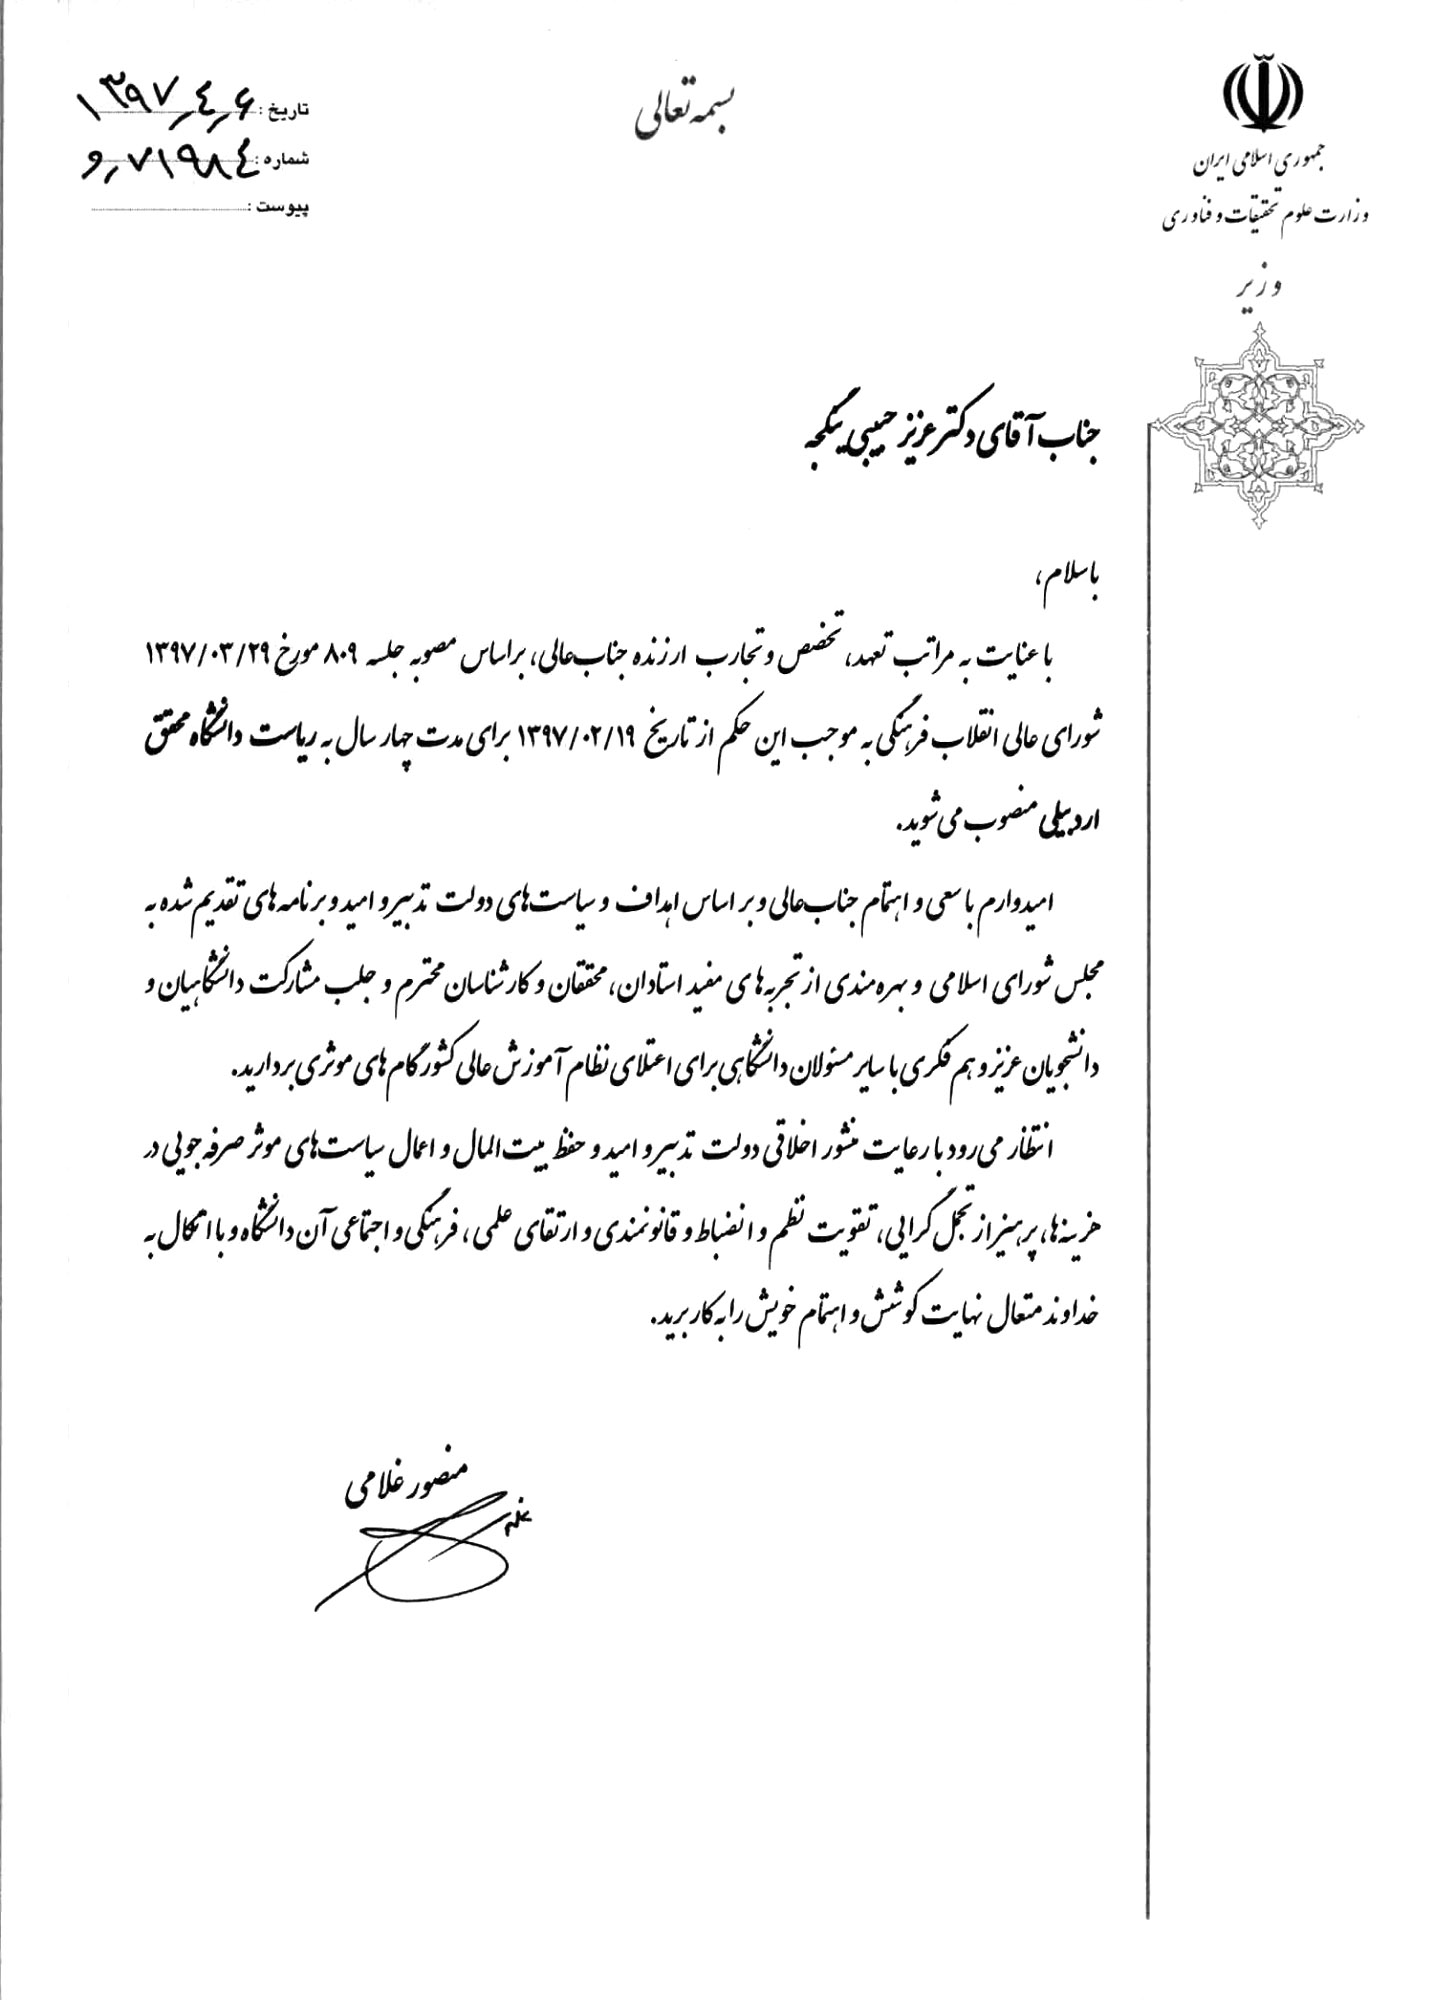 بسمه تعالی
جمهوری اسلامی ایران
وزارت علوم تحقیقات و فناوری
وزیر
تاریخ: ۱۳۹۷/۴/۶
شماره: ۷۱۹۸۴/و
پیوست:
جناب آقای دکتر عزیز حبیبی ینگجه
با سلام،
با عنایت به مراتب تعهد، تخصص و تجارب ارزنده جناب‌عالی، براساس مصوبه جلسه ۸۰۹ مورخ ۱۳۹۷/۰۳/۲۹
شورای عالی انقلاب فرهنگی به موجب این حکم از تاریخ ۱۳۹۷/۰۲/۱۹ برای مدت چهار سال به ریاست دانشگاه محقق
اردبیلی منصوب می‌شوید.
امیدوارم با سعی و اهتمام جناب‌عالی و بر اساس اهداف و سیاست‌های دولت تدبیر و امید و برنامه‌های تقدیم شده به
مجلس شورای اسلامی و بهره‌مندی از تجربه‌های مفید استادان، محققان و کارشناسان محترم و جلب مشارکت دانشگاهیان و
دانشجویان عزیز و هم فکری با سایر مسئولان دانشگاهی برای اعتلای نظام آموزش عالی کشور گام های موثری بردارید.
انتظار می‌رود با رعایت منشور اخلاقی دولت تدبیر و امید و حفظ بیت‌المال و اعمال سیاست‌های موثر صرفه جویی در
هزینه‌ها، پرهیز از تجمل گرایی، تقویت نظم و انضباط و قانونمندی و ارتقای علمی، فرهنگی و اجتماعی آن دانشگاه و با اتکال به
خداوند متعال نهایت کوشش و اهتمام خویش را به کار برید.
منصور غلامی